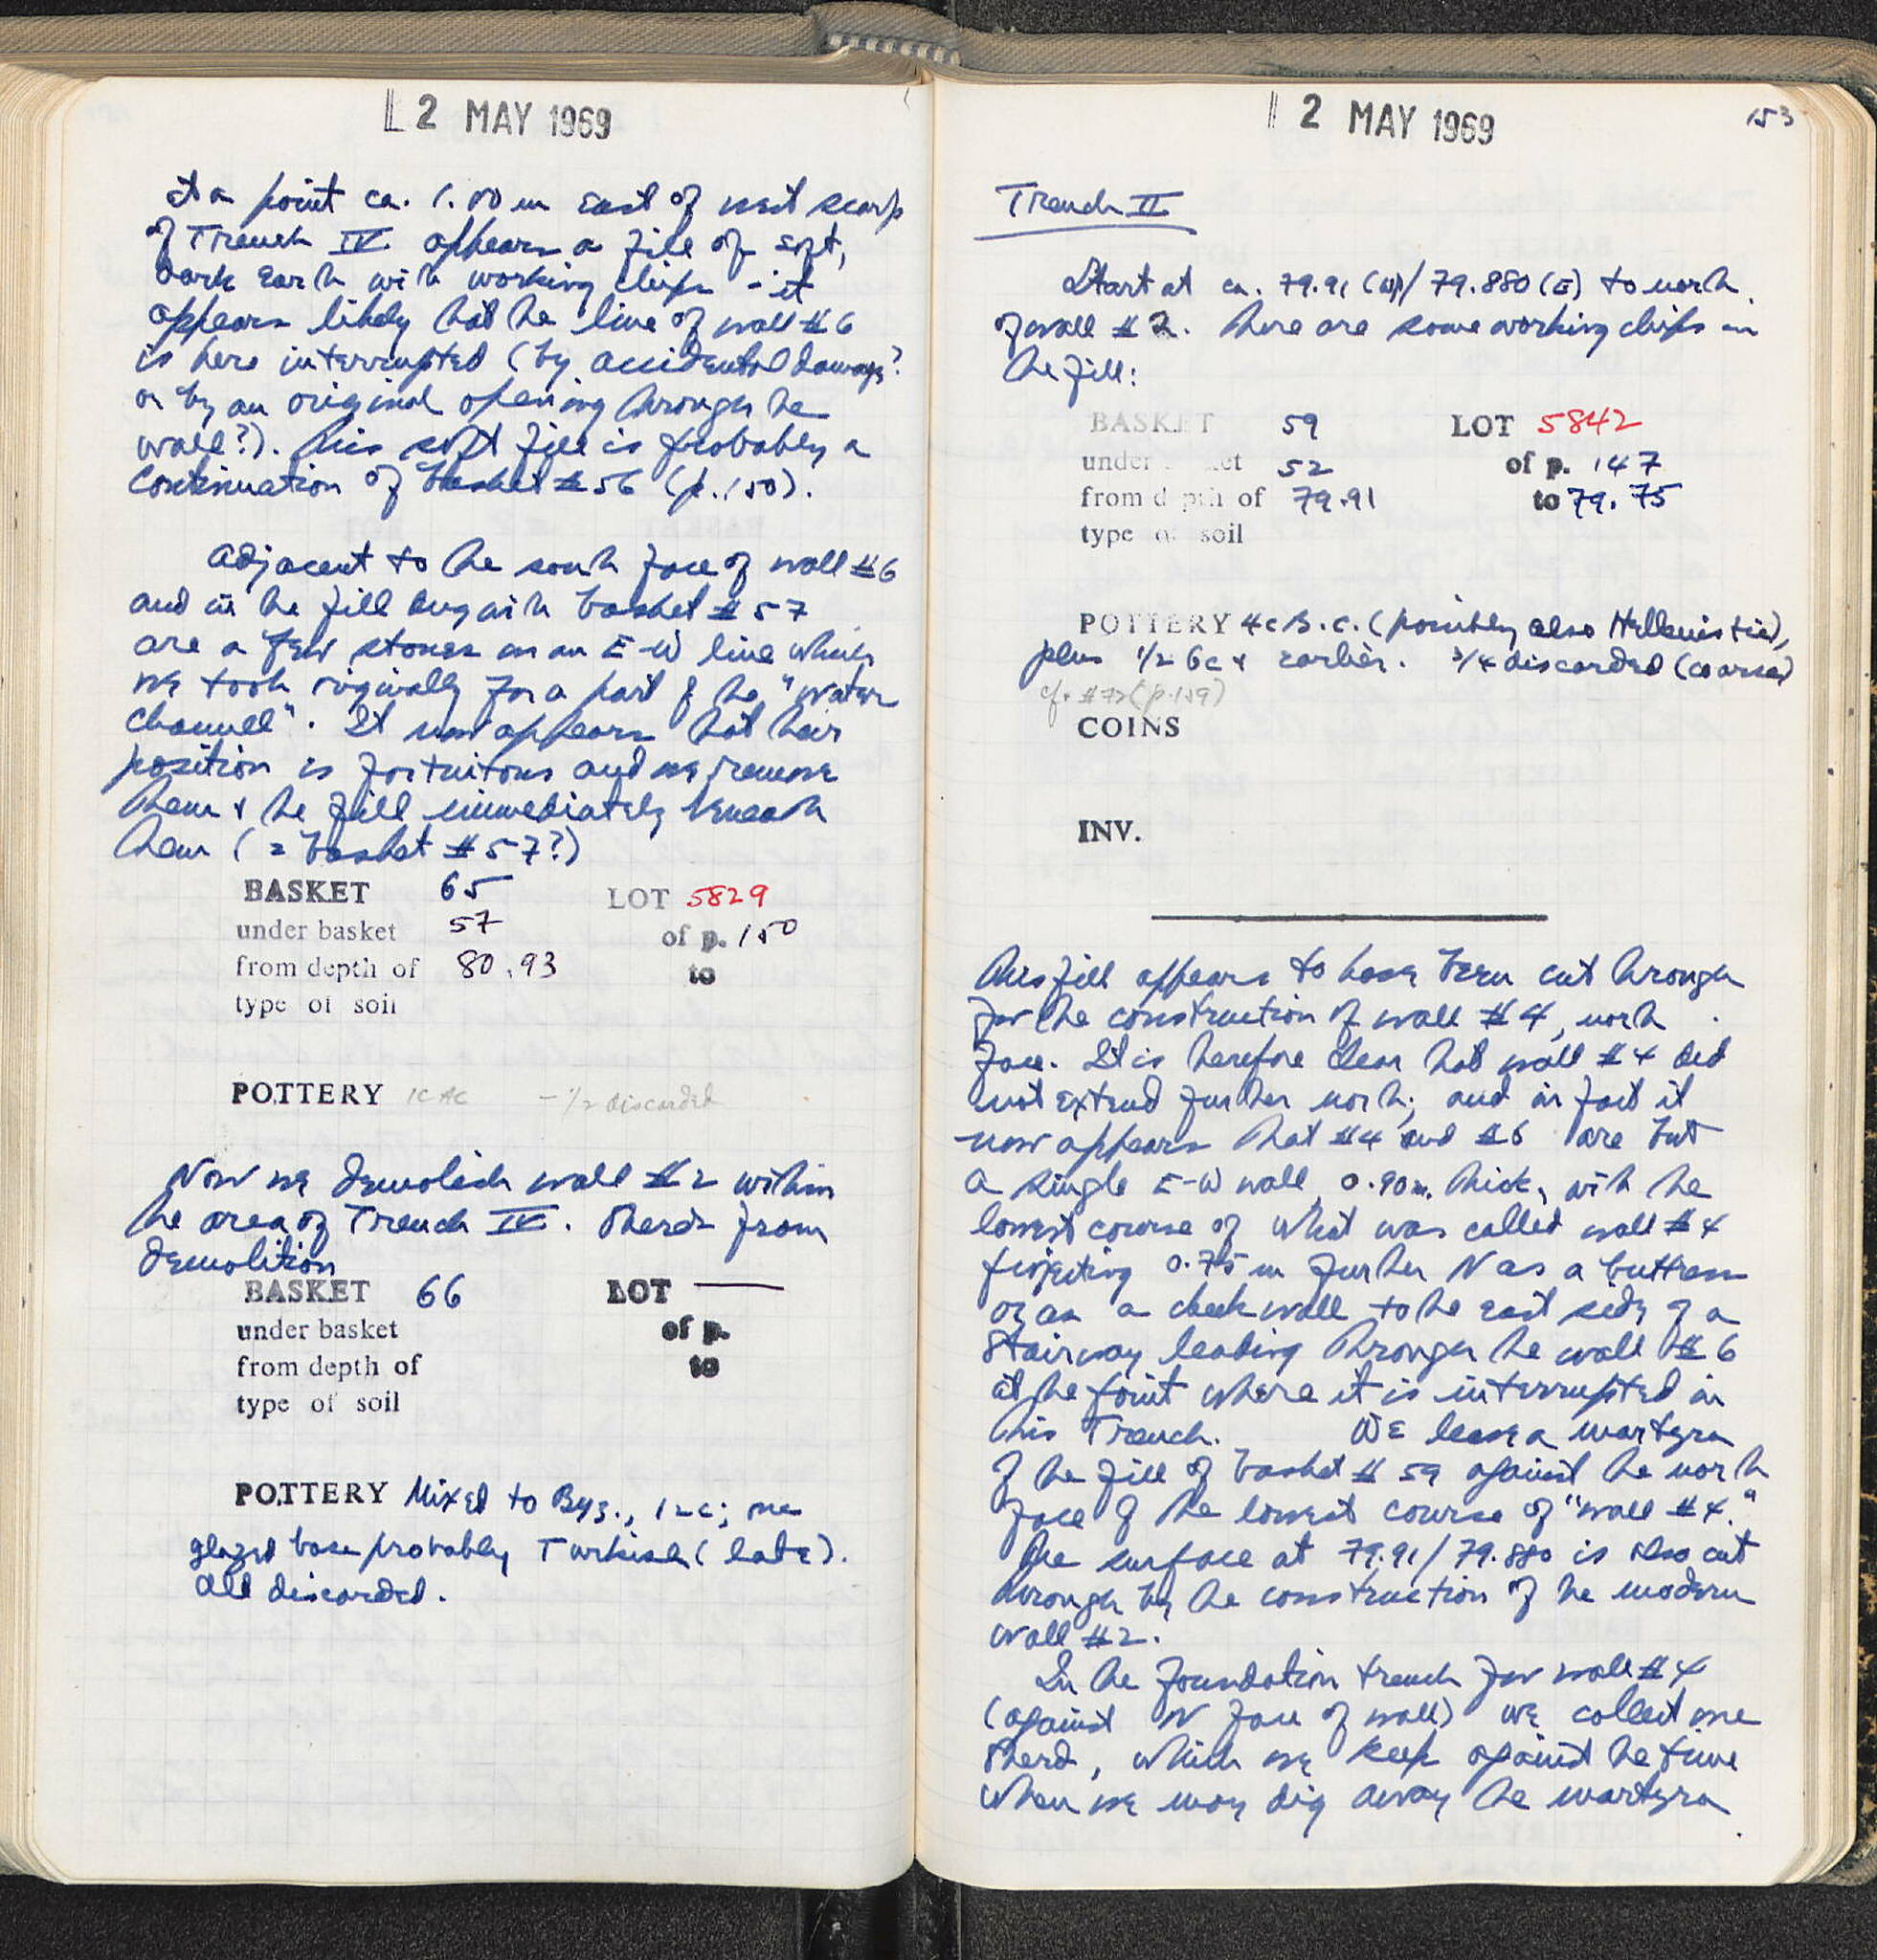 12 MAY 1969
At a point ca. 1.00 m east of west scarp
of Trench IV appears a fill of soft,
dark earth with working chips - it
appears likely that the line of wall #6
is here interrupted (by accidental damage?
or by an original opening through the
wall?). This soft fill is probably a
continuation of basket #56 (p.150).
Adjacent to the south face of wall #6
and in the fill dug with basket #57
are a few stones on an E-W line which
we took originally for a part of the "water
channel". It now appears that their
position is fortuitous and we remove
them & the fill immediately beneath
them (= basket #57?)
BASKET 65 LOT 5829
under basket 57 of p. 150
from depth of 80.93 to
type of soil
POTTERY 1C AC - 1/2 discarded
Now we demolish wall #2 within
the area of Trench IV. Sherds from
demolition
BASKET 66 LOT —
under basket of p.
from depth of to
type of soil
POTTERY Mixed to Byz., 12c; one
glazed base probably Turkish (late).
All discarded.
12 MAY 1969
153
Trench II
Start at ca. 79.91 (W)/79.880 (E) to north
of wall #2. There are some working chips in
the fill:
BASKET 59 LOT 5842
under basket 52 of p. 147
from depth of 79.91 to 79.75
type of soil
POTTERY 4c B.C. (possibly also Hellenistic),
plus 1/2 6c & earlier. 3/4 discarded (coarse)
cf. #72 (p.159)
COINS
INV.
This fill appears to have been cut through
for the construction of wall #4, north
face. It is therefore clear that wall #4 did
not extend further north; and in fact it
now appears that #4 and #6 are but
a single E-W wall, 0.90 m. thick, with the
lowest course of what was called wall #4
projecting 0.75 m further N as a buttress
or as a cheek wall to the east side of a
stairway leading through the wall #6
at the point where it is interrupted in
this Trench. We leave a martyra
of the fill of basket #59 against the north
face of the lowest course of "wall #4."
The surface at 79.91/79.880 is also cut
through by the construction of the modern
wall #2.
In the foundation trench for wall #4
(against N face of wall) we collect one
sherd, which we keep against the time
when we may dig away the martyra